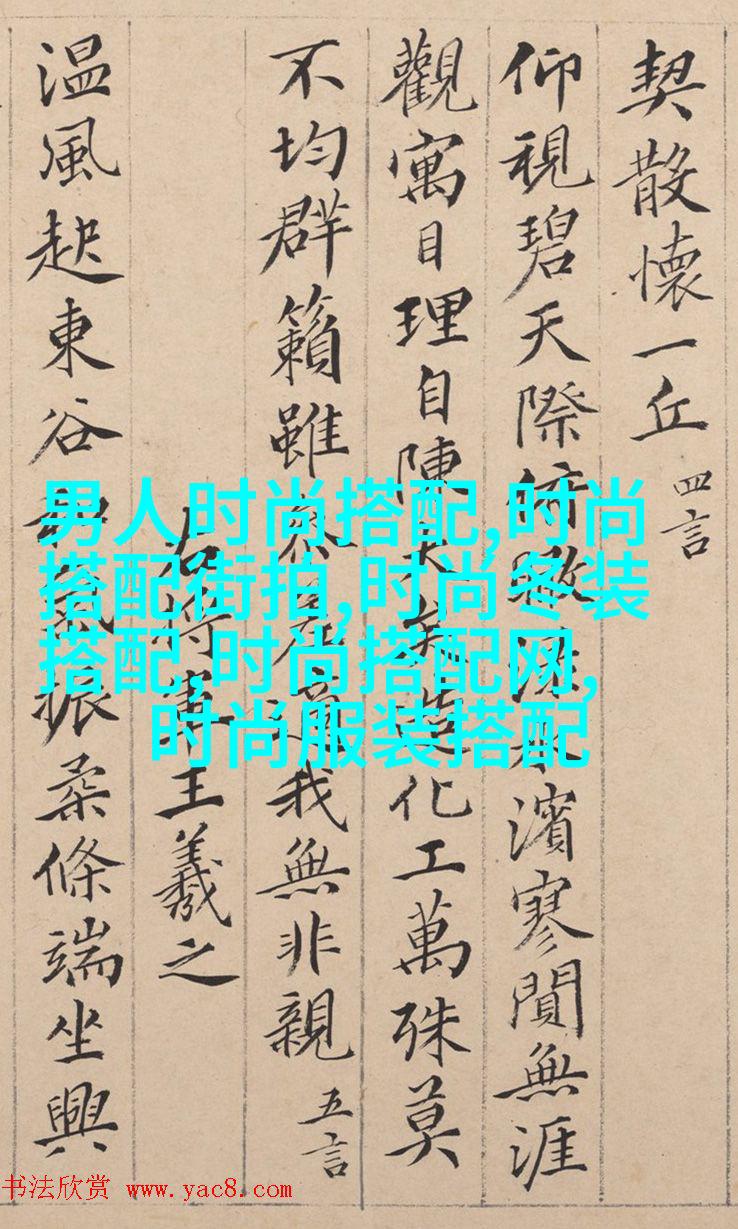 契散懷一丘 四言
仰視碧天際俯瞰淥水濱寥閴無涯
觀寓目理自陳大矣造化工萬殊莫
不均群籟雖參差適我無非親 五言
右將軍王羲之
温風起東谷和氣振柔條端坐興
男人时尚搭配,时尚
搭配街拍,时尚冬装
搭配,时尚搭配网,
时尚服装搭配
书法欣赏 www.yac8.com